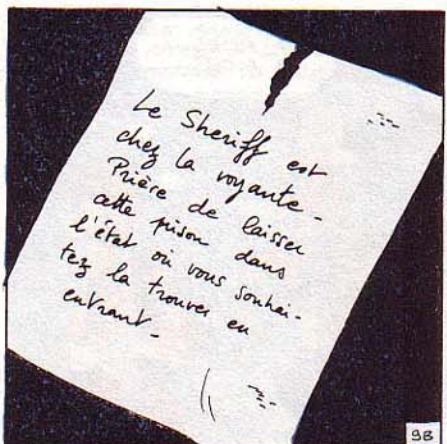 Le Sheriff est
chez la voyante -
Prière de laisser
cette prison dans
l'état où vous souhai-
tez la trouver en
entrant -
9B